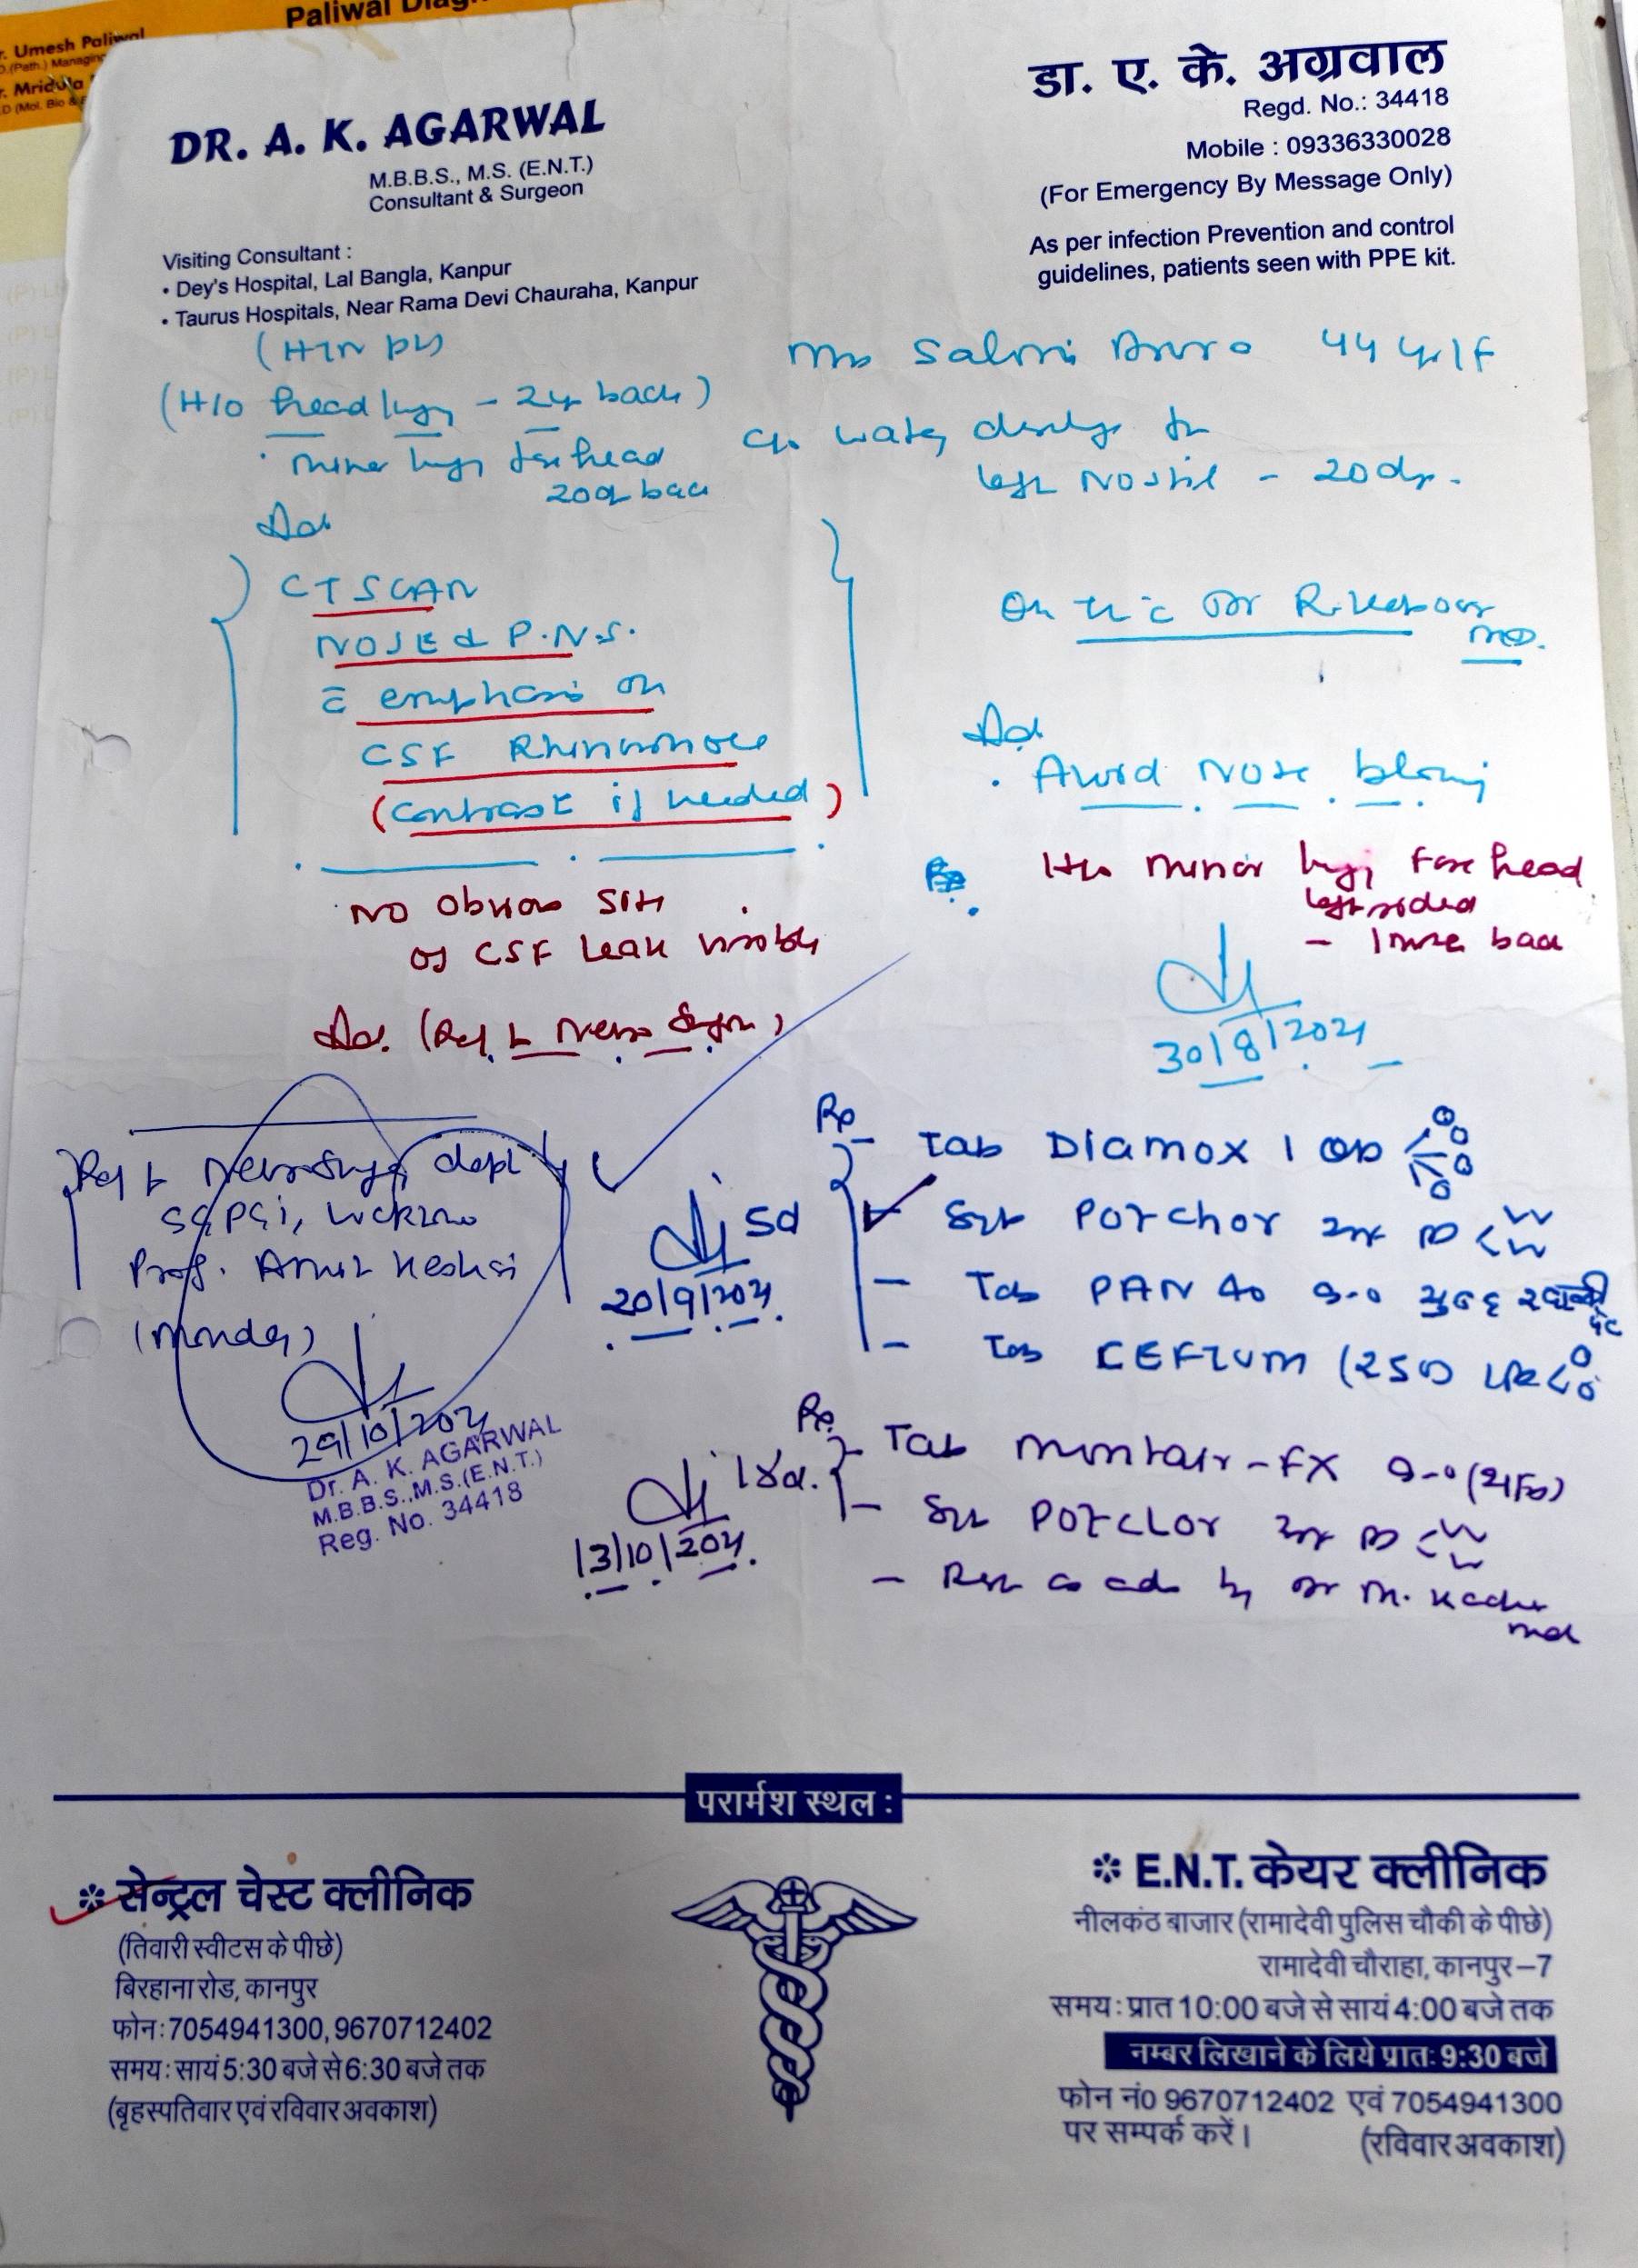 Paliwal Diag
r. Umesh Paliwal
D.(Path.) Managing
r. Mridula
D (Mol. Bio &
DR. A. K. AGARWAL
M.B.B.S., M.S. (E.N.T.)
Consultant & Surgeon
Visiting Consultant :
• Dey's Hospital, Lal Bangla, Kanpur
• Taurus Hospitals, Near Rama Devi Chauraha, Kanpur
डा. ए. के. अग्रवाल
Regd. No.: 34418
Mobile : 09336330028
(For Emergency By Message Only)
As per infection Prevention and control
guidelines, patients seen with PPE kit.
(HTN
(H/o head injury - 2yr back)
minor injury forehead
20d back
44 yr/F
c/o watery
left Nostril - 20
Adv
CT SCAN
NOSE & P.N.S.
c̄ emphasis on
CSF Rhinorrhoea
(Contrast if needed)
On
MD.
Adv
. Avoid Nose blowing
H/o minor injury Forehead
left sided
back
30/8/2021
No Obvious Site
of CSF Leak visible
Adv. (Ref to Neuro Surgeon)
Ref to Neurosurgery dept
SGPGI, Lucknow
Prof.
(Monday)
29/10/2021
Dr. A. K. AGARWAL
M.B.B.S.,M.S.(E.N.T.)
Reg. No. 34418
Rx
- Tab Diamox 1
5d
- POTCHOR
20/9/2021
- Tab PAN 40 सुबह खाली पेट
- Tab CEFTUM (250)
Rx
- Tab Montair-FX
- POTCLOR
13/10/2021
- Rest as adv by Dr M.
परार्मश स्थल :
* सेन्ट्रल चेस्ट क्लीनिक
(तिवारी स्वीटस के पीछे)
बिरहाना रोड, कानपुर
फोन : 7054941300, 9670712402
समय : सायं 5:30 बजे से 6:30 बजे तक
(बृहस्पतिवार एवं रविवार अवकाश)
* E.N.T. केयर क्लीनिक
नीलकंठ बाजार (रामादेवी पुलिस चौकी के पीछे)
रामादेवी चौराहा, कानपुर–7
समय : प्रात 10:00 बजे से सायं 4:00 बजे तक
नम्बर लिखाने के लिये प्रातः 9:30 बजे
फोन नं0 9670712402 एवं 7054941300
पर सम्पर्क करें। (रविवार अवकाश)